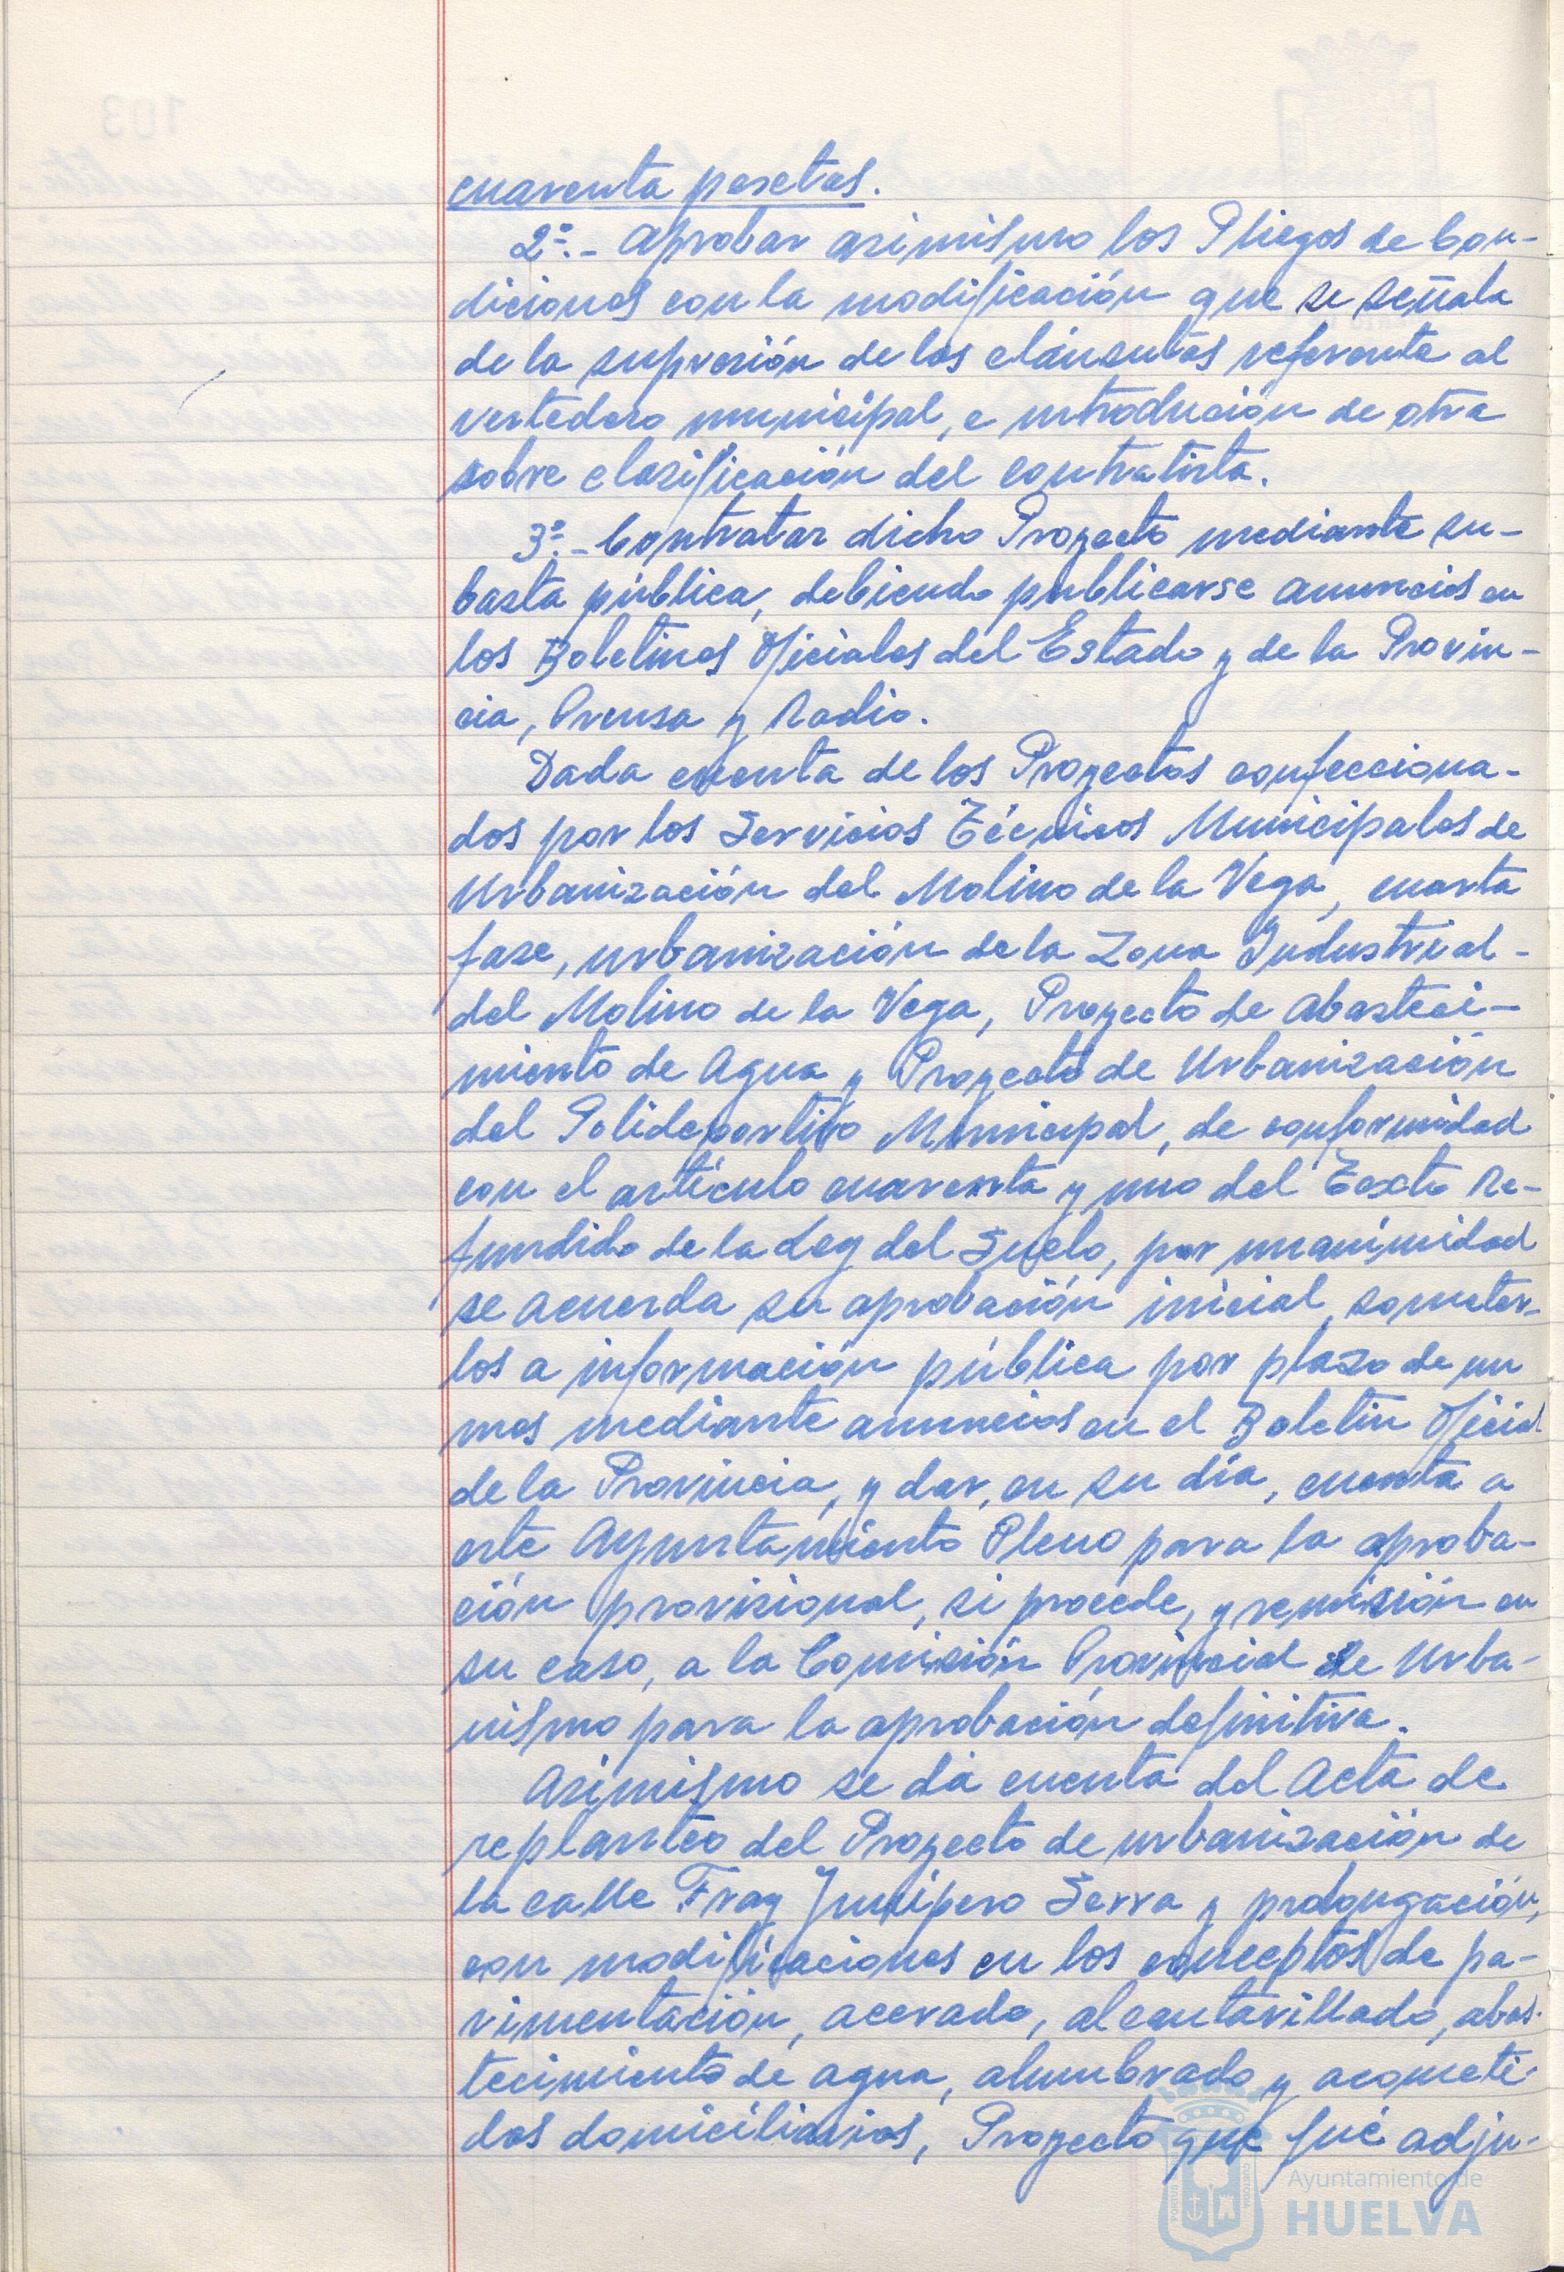 cuarenta pesetas.
2º.- Aprobar asimismo los Pliegos de Con-
diciones con la modificación que se señala
de la supresión de las cláusulas referente al
vertedero municipal, e introdución de otra
sobre clasificación del contratista.
3º.- Contratar dicho Proyecto mediante su-
basta pública, debiendo publicarse anuncios en
los Boletines Oficiales del Estado y de la Provin-
cia, Prensa y Radio.
Dada cuenta de los Proyectos confecciona-
dos por los Servicios Técnicos Municipales de
Urbanización del Molino de la Vega, cuarta
fase, urbanización de la Zona Industrial-
del Molino de la Vega, Proyecto de Abasteci-
miento de Agua y Proyecto de Urbanización
del Polideportivo Municipal, de conformidad
con el artículo cuarenta y uno del Texto Re-
fundido de la Ley del Suelo, por unanimidad
se acuerda su aprobación inicial, someter-
los a información pública por plazo de un
mes mediante anuncios en el Boletin Oficial
de la Provincia, y dar, en su día, cuenta a
este Ayuntamiento Pleno para la aproba-
ción provisional, si procede, y remisión en
su caso, a la Comisión Provincial de Urba-
nismo para la aprobación definitiva.
Asimismo se dá cuenta del Acta de
replanteo del Proyecto de urbanización de
la calle Fray Junípero Serra y prolongación,
con modificaciones en los conceptos de pa-
vimentación, acerado, alcantarillado, abas-
tecimiento de agua, alumbrado y acometi-
das domiciliarias, Proyecto que fué adju-
Ayuntamiento de
HUELVA